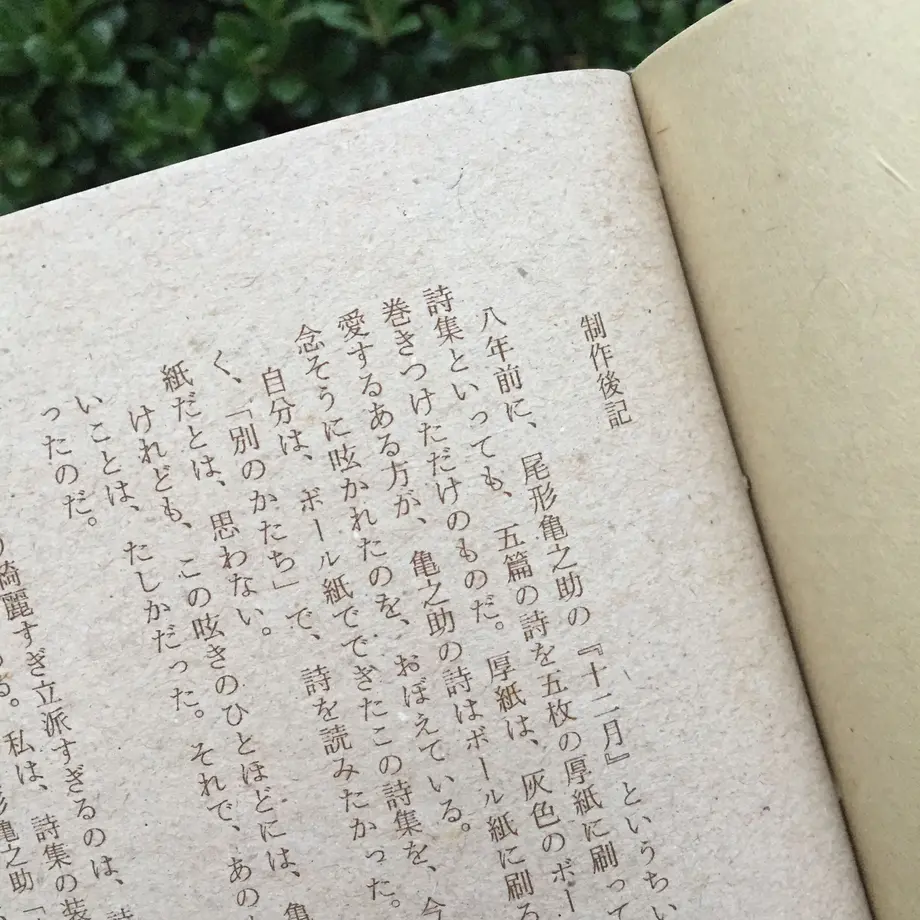 制作後記
八年前に、尾形亀之助の『十二月』というちい
詩集といっても、五篇の詩を五枚の厚紙に刷って
巻きつけただけのものだ。厚紙は、灰色のボー
愛するある方が、亀之助の詩はボール紙に刷る
念そうに呟かれたのを、おぼえている。
自分は、ボール紙でできたこの詩集を、今
く、「別のかたち」で、詩を読みたかった。
紙だとは、思わない。
けれども、この呟きのひとほどには、亀
いことは、たしかだった。それで、あの
ったのだ。
綺麗すぎ立派すぎるのは、詩
る。私は、詩集の装
形亀之助「